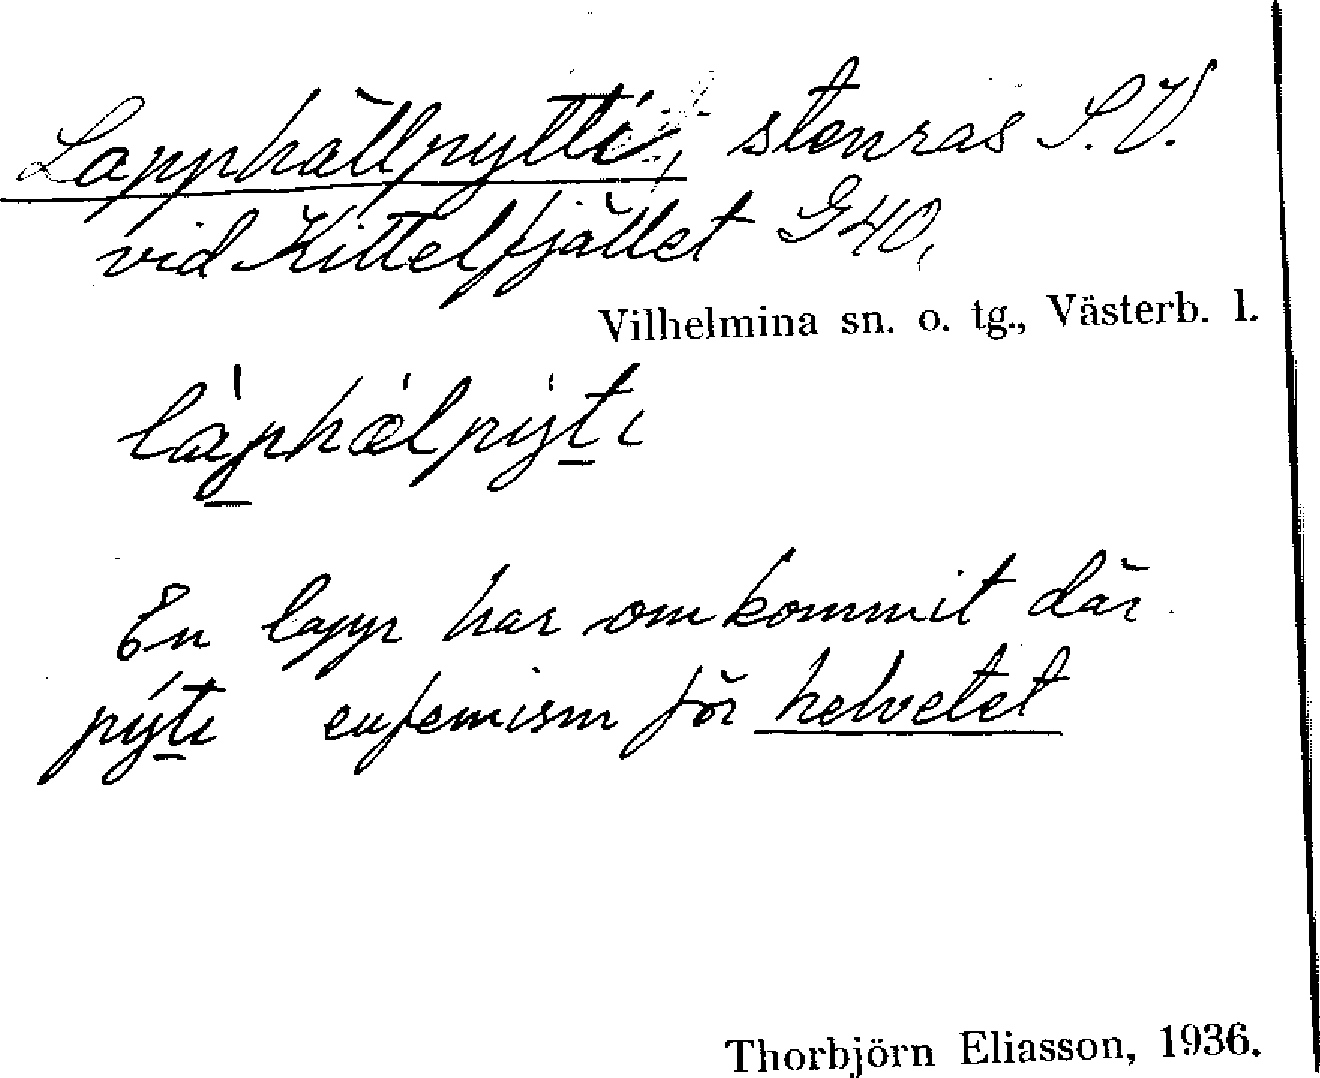 Lapphällpytti, stenras S.V.
vid Kittelfjället G40,
Vilhelmina sn. o. tg., Västerb. l.
làphælpýti
En lapp har omkommit där
pýti eufemism för helvetet
Thorbjörn Eliasson, 1936.